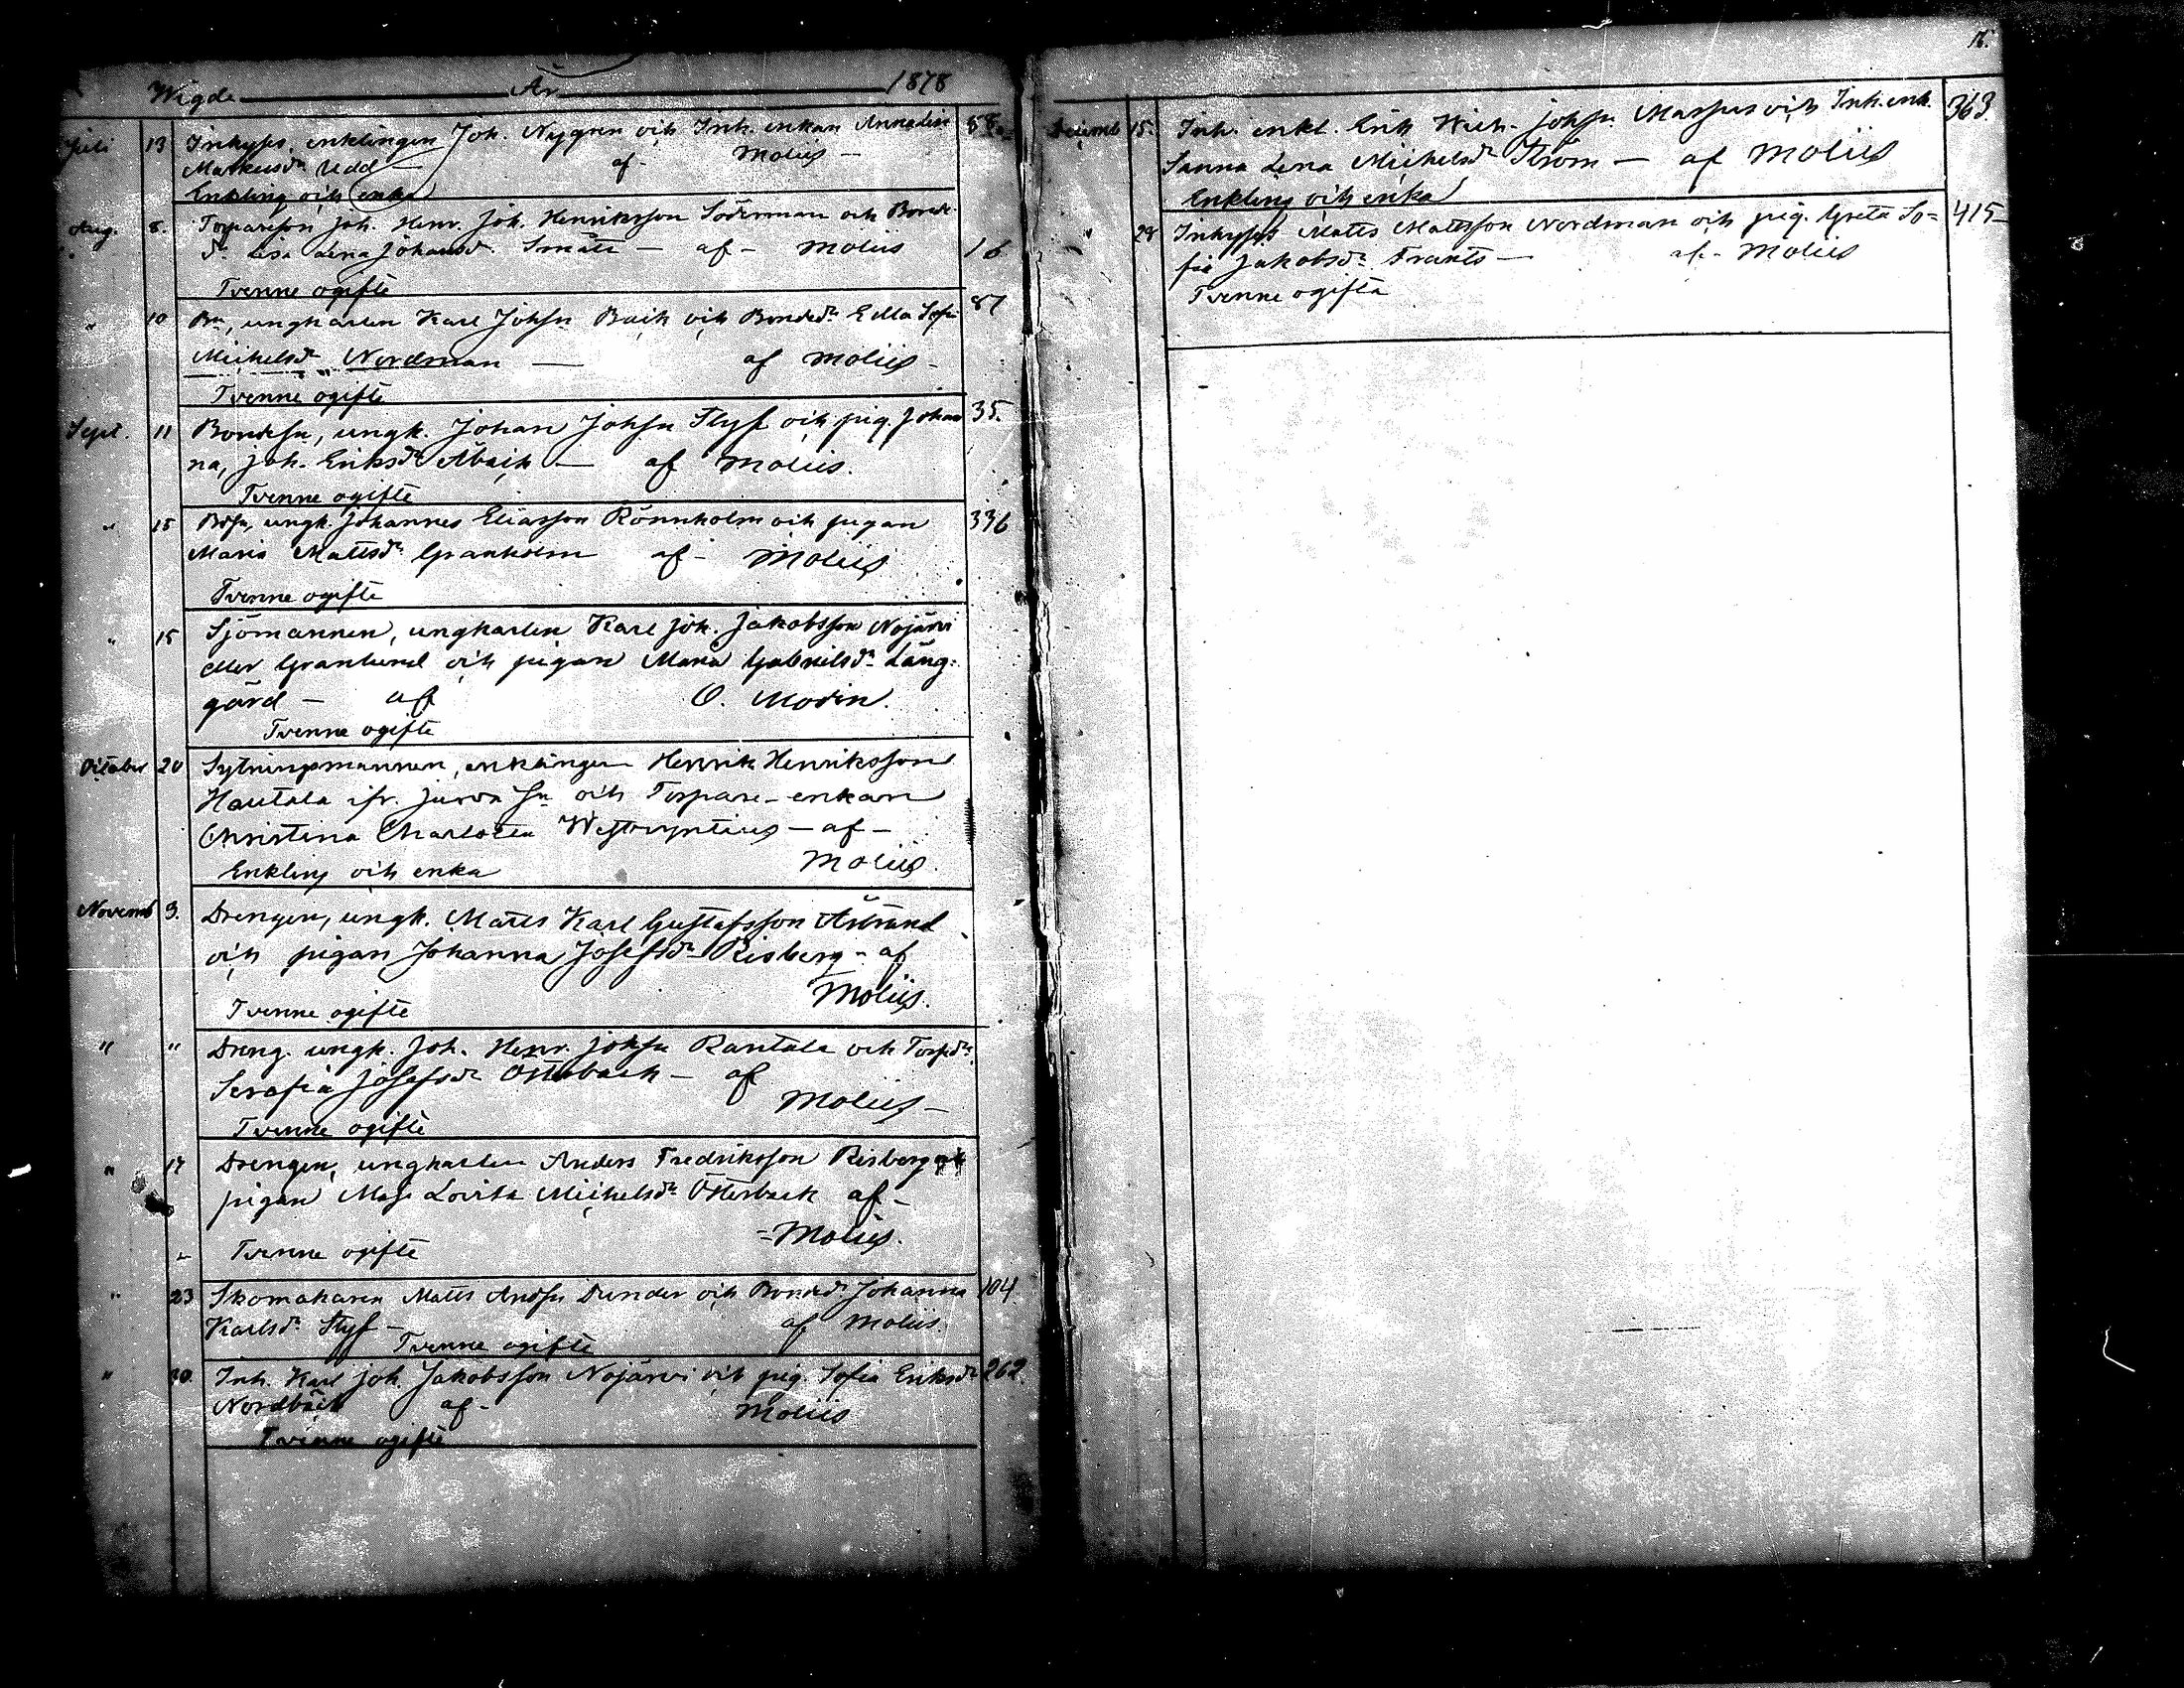 Wigde År 1878
Juli 13 Inhyses, enklingen Joh. Nygren och Inh. enkan Anna Lisa 58
Markusdr Udd af Molüs
Enkling och enka
Aug. 8. Torpareson Joh. Henr. Joh. Henriksson Söderman och Bonde-
dr Lisa Lena Johansdr Smått af Molüs 16
Tvenne ogifte
" 10 Bn, ungkarlen Karl Johsn Back och Bondedr Edla Sofia 87
Michelsdr Nordman af Molüs
Tvenne ogifte
Sept. 11 Bondesn, ungk. Johan Johsn Styf och pig. Johan 35.
na, Joh. Eriksdr Åback af Molüs.
Tvenne ogifte
" 15 Bdsn, ungk. Johannes Eliasson Rönnholm och pigan 336
Maria Mattsdr Granholm af Molüs
Tvenne ogifte
" 15 Sjömannen, ungkarlen Karl Joh. Jakobsson Nojärvi
eller Granlund och pigan Maria Gabrielsdr Lång-
gård af O. Modin.
Tvenne ogifte
October 20 Sytningsmannen, enklingen Henrik Henriksson
Hautala ifr. Jurva sn och Torpare-enkan
Christina Charlotta af
Enkling och enka Molüs.
Novemb 3. Drengen, ungk. Matts Karl Gustafsson Åstrand
och pigan Johanna Josefsdr Risberg af
Molüs.
Tvenne ogifte
" " Dreng. ungk. Joh. Henr. Johsn Rantala och Torpdr
Serafia Josefsdr Österback af
Molüs
Tvenne ogifte
" 17 Drengen, ungkarlen Anders Fredriksson Risberg och
pigan Maja Lovisa Michelsdr Österback af
Molüs.
Tvenne ogifte
" 23 Skomakaren Matts Andsn Dunder och Bondedr Johanna 104
Karlsdr Styf af Molüs.
Tvenne ogifte
" 30. Inh. Karl Joh. Jakobsson Nojärvi och pig. Sofia Eriksdr 262.
Nordback af Molüs
Tvenne ogifte
Decemb 15. Inh. enkl. Erik Wilh. Johsn Massus och Inh. enk. 363.
Sanna Lena Michelsdr Ström af Molüs
Enkling och enka
" 28 Inhyses Matts Mattsson Nordman och pig. Greta So- 415
fia Jakobsdr Frants af Molüs
Tvenne ogifta